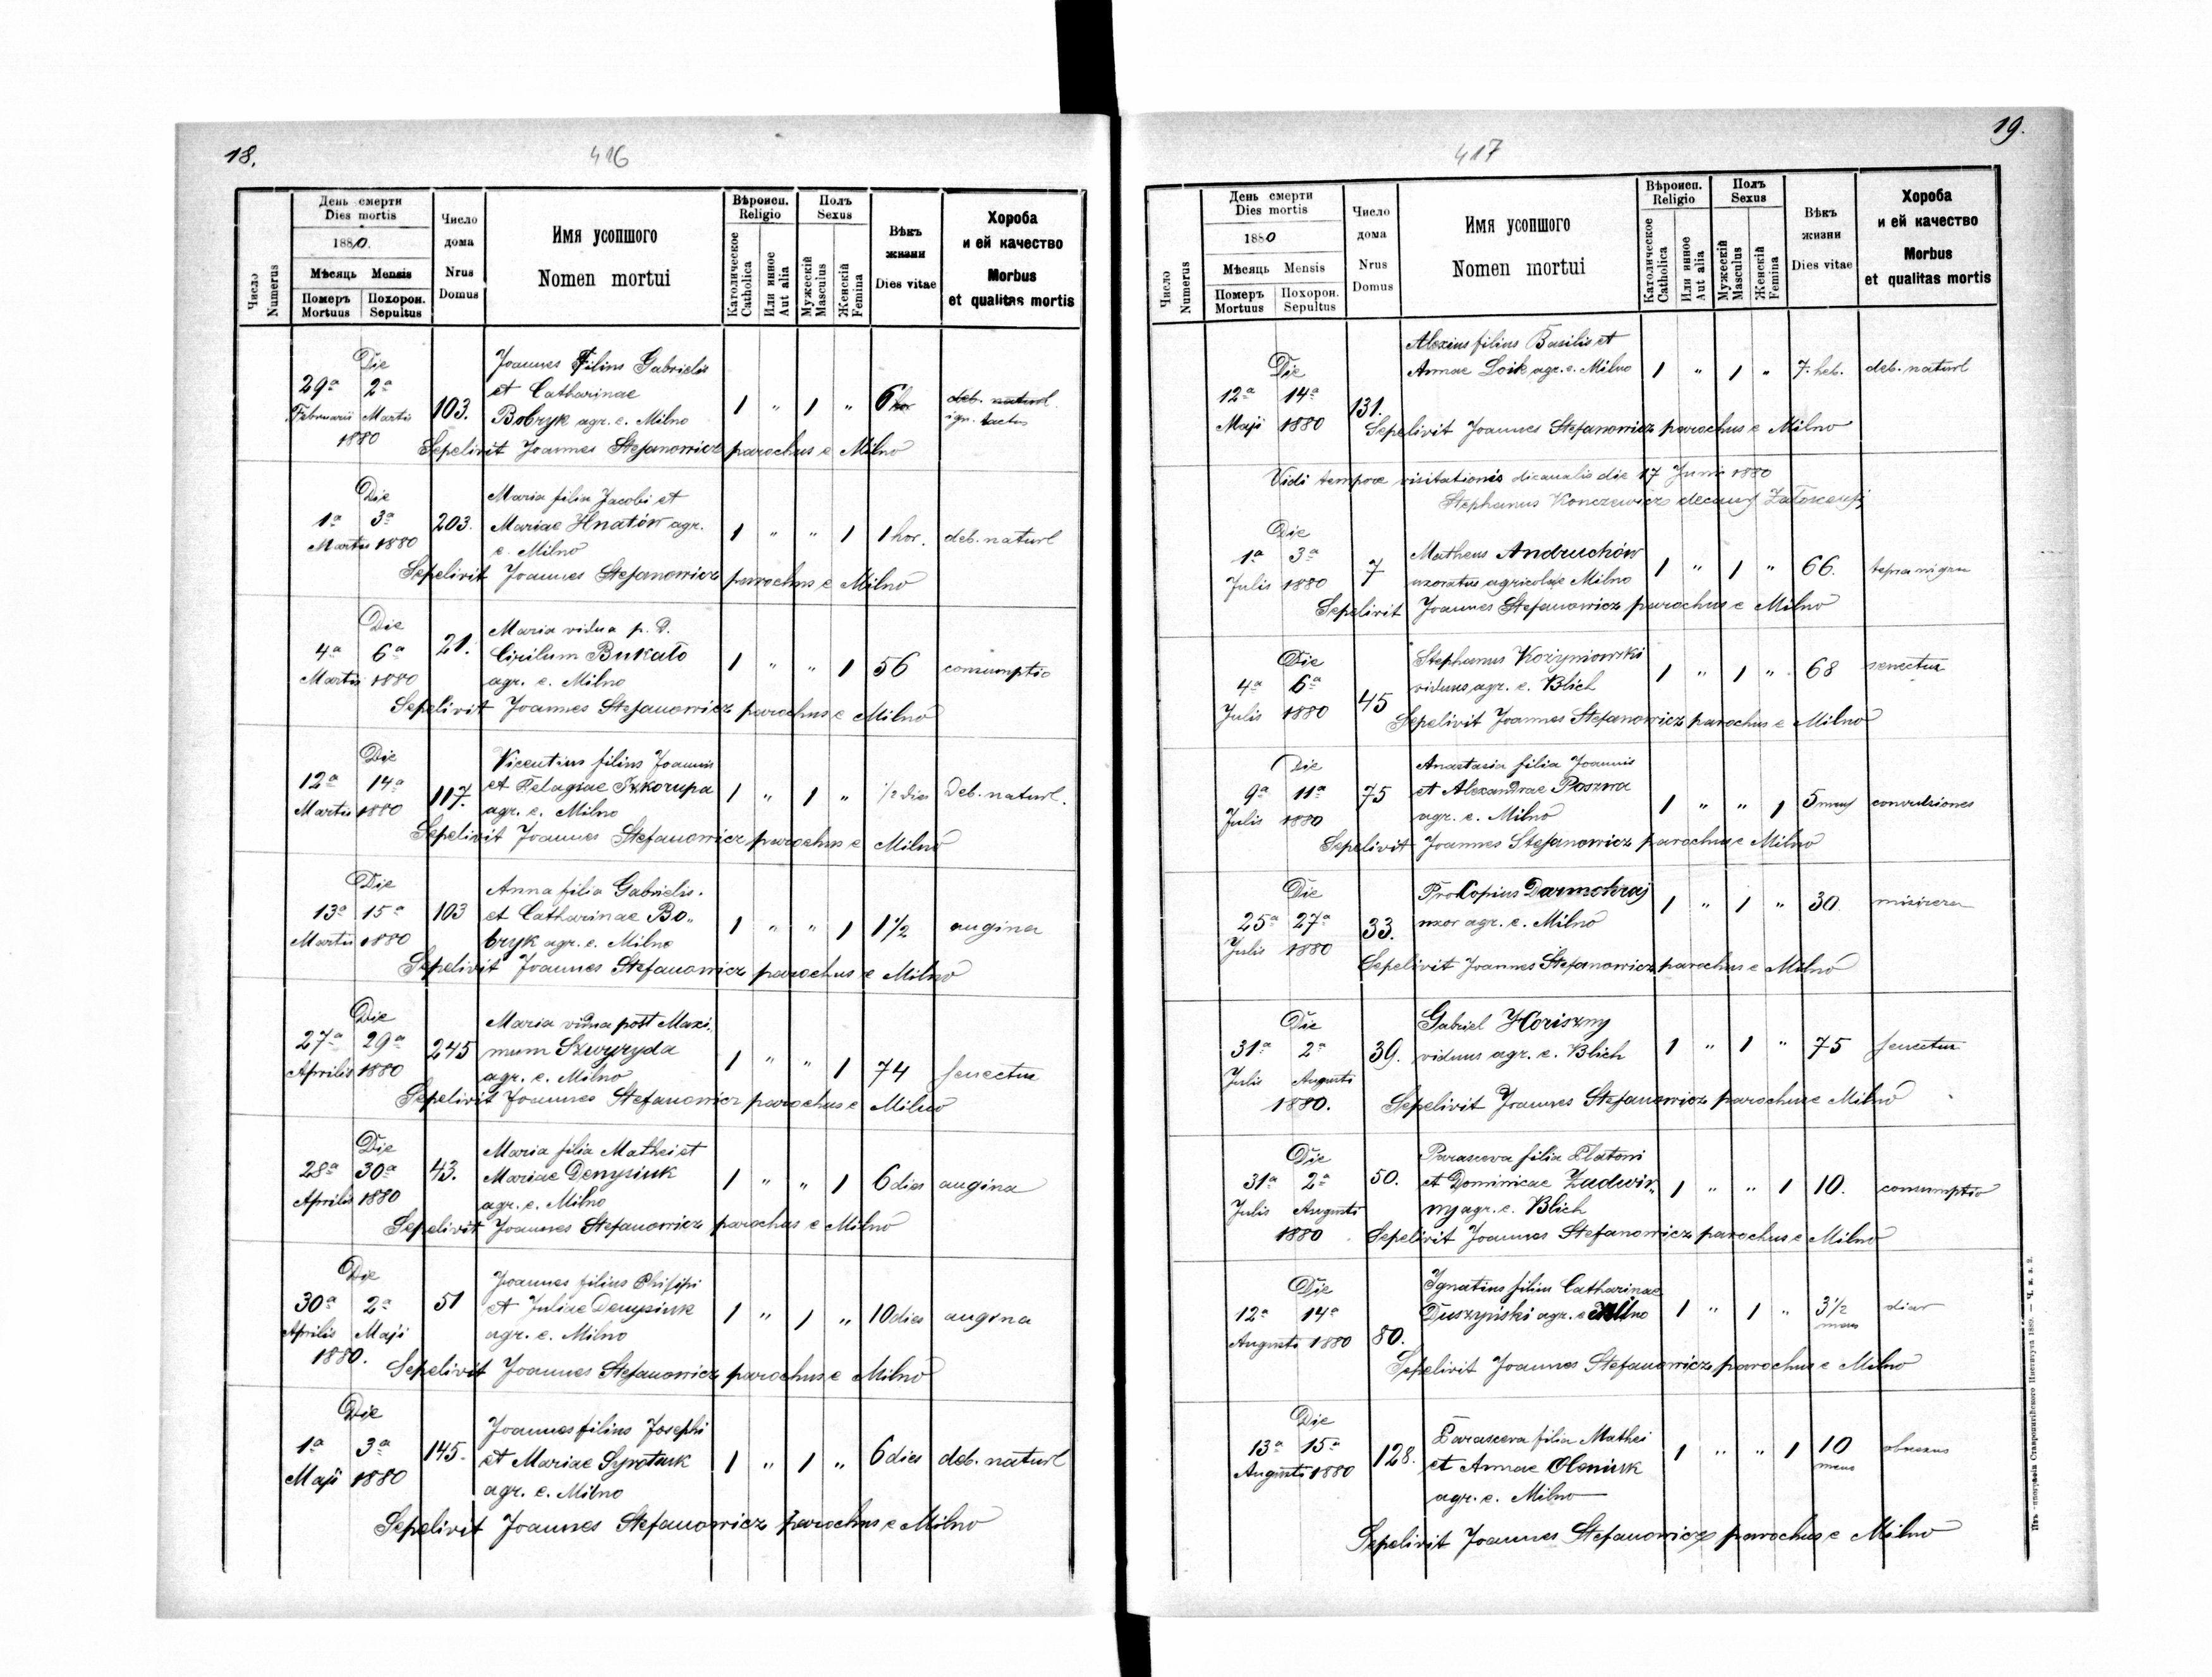 18.
416
Число
Numerus
День смерти
Dies mortis
1880.
Мѣсяць Mensis
Померъ
Mortuus
Похорон.
Sepultus
Число
дома
Nrus
Domus
Имя усопшого
Nomen mortui
Вѣроисп.
Religio
Католическое
Catholica
Или инное
Aut alia
Полъ
Sexus
Мужескій
Masculus
Женскій
Femina
Вѣкъ
жизни
Dies vitae
Хороба
и ей качество
Morbus
et qualitas mortis
Die
29ª 2ª
Februarii Martii
1880
103.
Joannes Filius Gabrielis
et Catharinae
Bobryk agr. e. Milno
1 " 1 " 6 hor
deb. naturl.
ign. tactus
Sepelivit Joannes Stefanowicz parochus e Milno
Die
1ª 3ª
Martii 1880
203.
Maria filia Jacobi et
Mariae Hnatów agr.
e. Milno
1 " " 1 1 hor. deb. naturl
Sepelivit Joannes Stefanowicz parochus e Milno
Die
4ª 6ª
Martii 1880
21.
Maria vidua p. D.
Cirilum Bukało
agr. e. Milno
1 " " 1 56 consumptio
Sepelivit Joannes Stefanowicz parochus e Milno
Die
12ª 14ª
Martii 1880
117.
Vicentius filius Joannis
et Pelagiae Szkorupa
agr. e. Milno
1 " 1 " 1/2 dies deb. naturl.
Sepelivit Joannes Stefanowicz parochus e Milno
Die
13ª 15ª
Martii 1880
103
Anna filia Gabrielis.
et Catharinae Bo„
bryk agr. e. Milno
1 " " 1 1 1/2 angina
Sepelivit Joannes Stefanowicz parochus e Milno
Die
27ª 29ª
Aprilis 1880
245
Maria vidua post Maxi„
mum Szwyryda
agr. e. Milno
1 " " 1 74 senectus
Sepelivit Joannes Stefanowicz parochus e Milno
Die
28ª 30ª
Aprilis 1880
43.
Maria filia Mathei et
Mariae Denysiuk
agr. e. Milno
1 " " 1 6 dies angina
Sepelivit Joannes Stefanowicz parochus e Milno
Die
30ª 2ª
Aprilis Maji
1880.
51
Joannes filius Philipi
et Juliae Denysiuk
agr. e. Milno
1 " 1 " 10 dies angina
Sepelivit Joannes Stefanowicz parochus e Milno
Die
1ª 3ª
Maji 1880
145.
Joannes filius Josephi
et Mariae Syrotiuk
agr. e. Milno
1 " 1 " 6 dies deb. naturl
Sepelivit Joannes Stefanowicz parochus e Milno
19.
417
Число
Numerus
День смерти
Dies mortis
1880
Мѣсяць Mensis
Померъ
Mortuus
Похорон.
Sepultus
Число
дома
Nrus
Domus
Имя усопшого
Nomen mortui
Вѣроисп.
Religio
Католическое
Catholica
Или инное
Aut alia
Полъ
Sexus
Мужескій
Masculus
Женскій
Femina
Вѣкъ
жизни
Dies vitae
Хороба
и ей качество
Morbus
et qualitas mortis
Die
12ª 14ª
Maji 1880
131.
Alexius filius Basilis et
Annae Loik agr. e. Milno
1 " 1 " 7. heb. deb. naturl
Sepelivit Joannes Stefanowicz parochus e Milno
Vidi tempore visitationis dicanalis die 17 Junii 1880
Stephanus Konczewicz
Die
1ª 3ª
Julis 1880
7
Matheus Andruchów
uxoratus agricolae Milno
1 " 1 " 66.
Sepelivit Joannes Stefanowicz parochus e Milno
Die
4ª 6ª
Julis 1880
45
Stephanus Kożyniowski
viduus agr. e. Blich
1 " 1 " 68 senectus
Sepelivit Joannes Stefanowicz parochus e Milno
Die
9ª 11ª
Julis 1880
75
Anastasia filia Joannis
et Alexandrae Poszwa
agr. e. Milno
1 " " 1 5 convulsiones
Sepelivit Joannes Stefanowicz parochus e Milno
Die
25ª 27ª
Julis 1880
33.
Prokopius Darmohraj
uxor agr. e. Milno
1 " 1 " 30.
Sepelivit Joannes Stefanowicz parochus e Milno
Die
31ª 2ª
Julis Augusti
1880.
39.
Gabriel Horiszny
viduus agr. e. Blich
1 " 1 " 75 senectus
Sepelivit Joannes Stefanowicz parochus e Milno
Die
31ª 2ª
Julis Augusti
1880
50.
Parasceva filia Platoni
et Dominicae Zudwir„
ny agr. e. Blich
1 " " 1 10. consumptio
Sepelivit Joannes Stefanowicz parochus e Milno
Die
12ª 14ª
Augusti 1880
80.
Ignatius filius Catharinae
Duszyński agr. e Milno
1 " 1 " 3 1/2
mens
diar
Sepelivit Joannes Stefanowicz parochus e Milno
Die
13ª 15ª
Augusti 1880
128.
Parasceva filia Mathei
et Annae Oleniuk
agr. e. Milno
1 " " 1 10
mens
Sepelivit Joannes Stefanowicz parochus e Milno
Изъ типографіи Ставропигійского Института